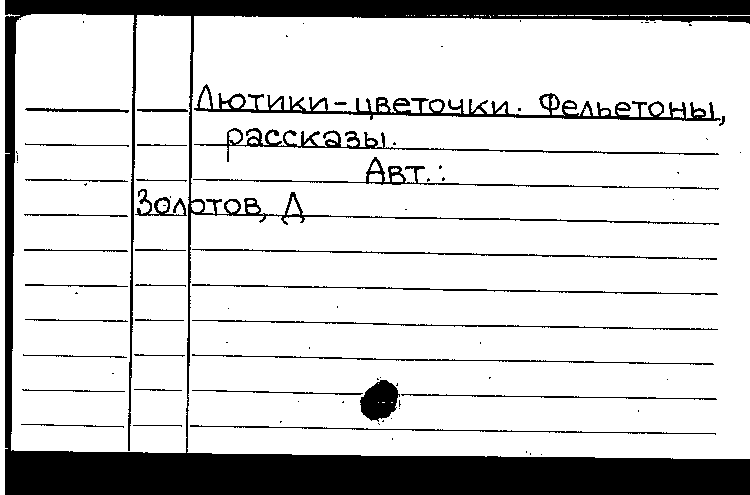 Лютики-цветочки. Фельетоны,
рассказы.
Авт.:
Золотов, Д